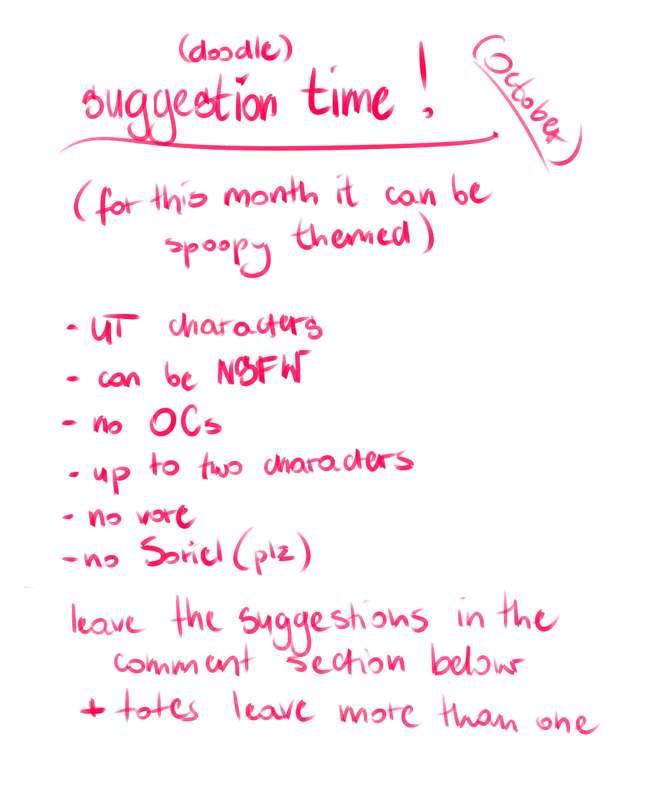 (doodle)
suggestion time!
(October)
(for this month it can be
spoopy themed)
- UT characters
- can be NSFW
- no OCs
- up to two characters
- no vore
- no Soriel (plz)
leave the suggestions in the
comment section below
+ totes leave more than one